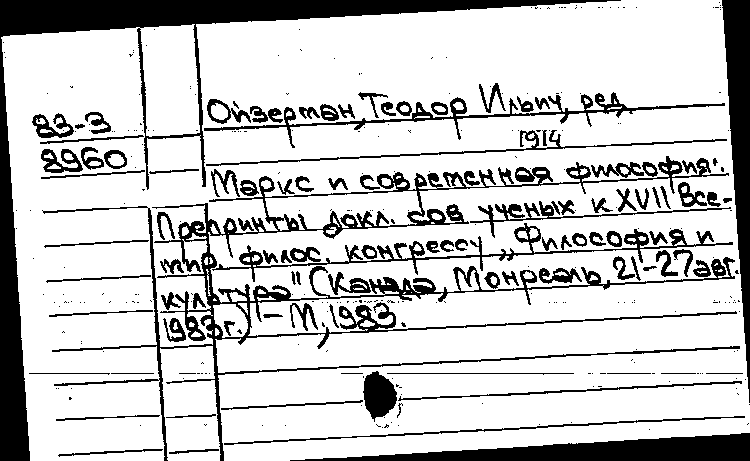 83-3
8960
Ойзерман, Теодор Ильич, ред.
1914
Маркс и современная философия:
Препринты докл. сов ученых к XVII Все-
мир. филос. конгрессу „Философия и
культура" (Канада, Монреаль, 21-27 авг.
1983г.) - М, 1983.